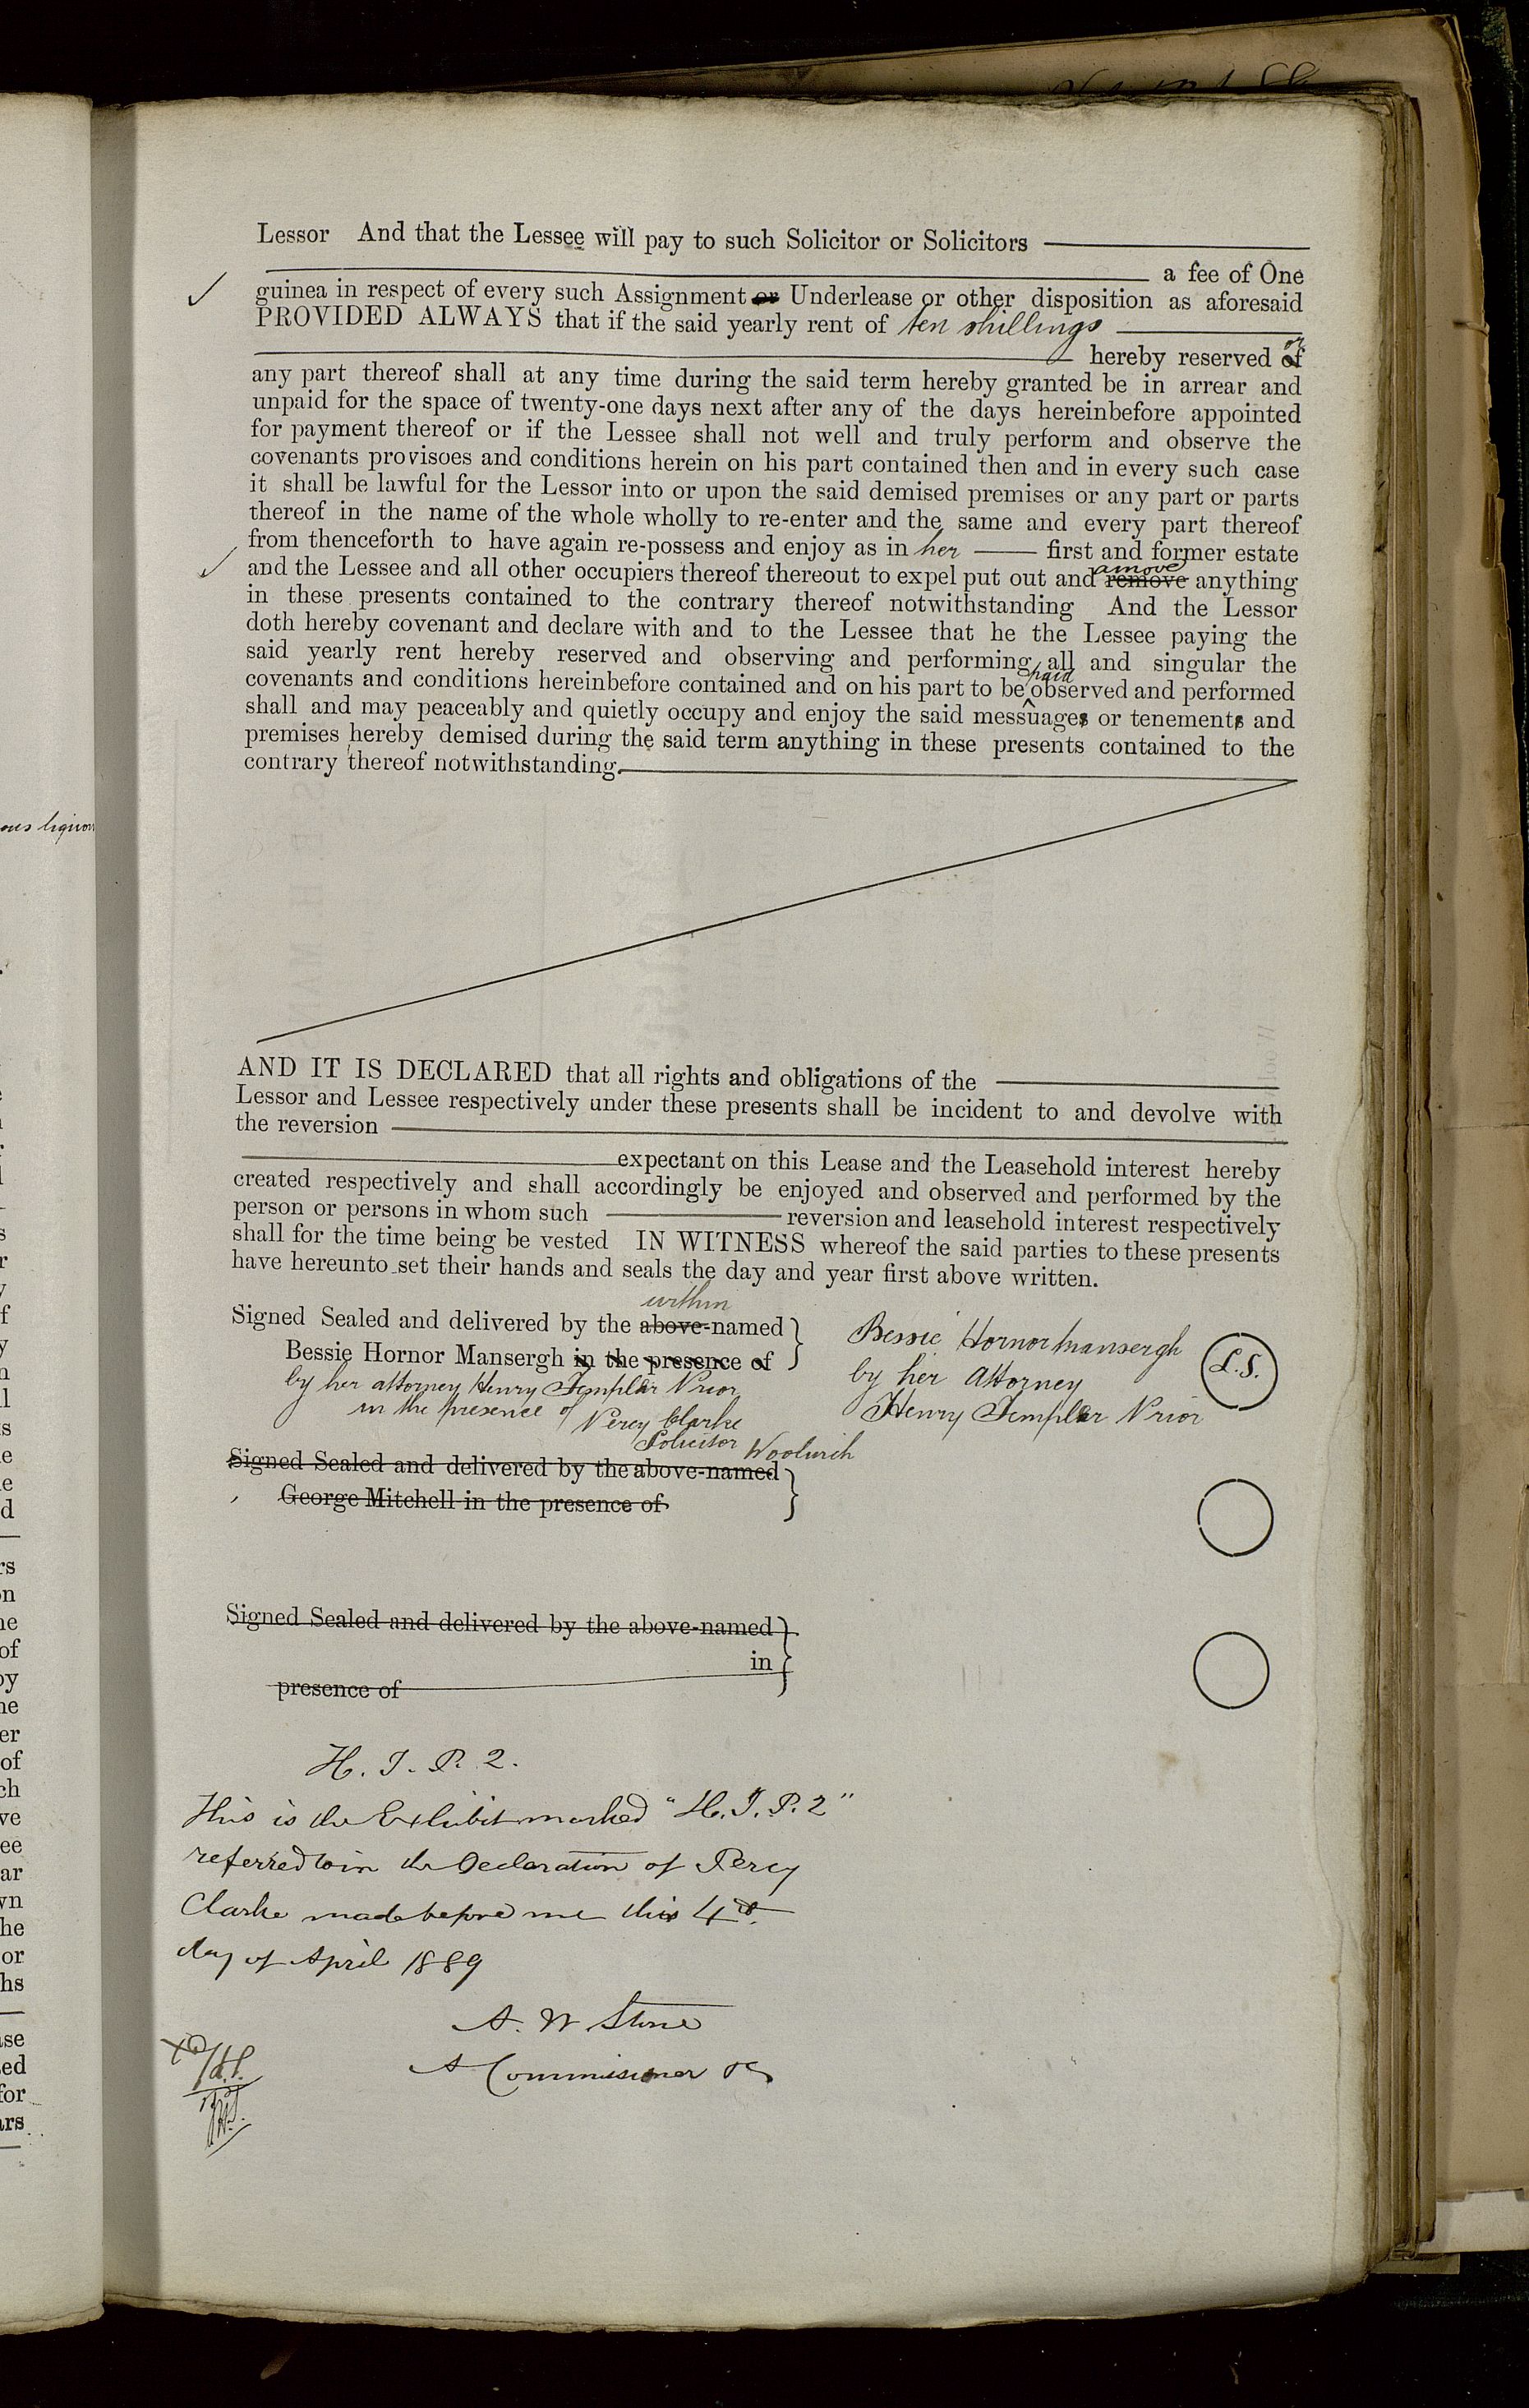 Lessor And that the Lessee will pay to such Solicitor or Solicitors
a fee of One
guinea in respect of every such Assignment or Underlease or other disposition as aforesaid
PROVIDED ALWAYS that if the said yearly rent of ten shillings
or
hereby reserved of
any part thereof shall at any time during the said term hereby granted be in arrear and
unpaid for the space of twenty-one days next after any of the days hereinbefore appointed
for payment thereof or if the Lessee shall not well and truly perform and observe the
covenants provisoes and conditions herein on his part contained then and in every such case
it shall be lawful for the Lessor into or upon the said demised premises or any part or parts
thereof in the name of the whole wholly to re-enter and the same and every part thereof
from thenceforth to have again re-possess and enjoy as in her first and former estate
amove
and the Lessee and all other occupiers thereof thereout to expel put out and remove anything
in these presents contained to the contrary thereof notwithstanding And the Lessor
doth hereby covenant and declare with and to the Lessee that he the Lessee paying the
said yearly rent hereby reserved and observing and performing all and singular the
paid
covenants and conditions hereinbefore contained and on his part to be observed and performed
shall and may peaceably and quietly occupy and enjoy the said messuages or tenements and
premises hereby demised during the said term anything in these presents contained to the
contrary thereof notwithstanding.
AND IT IS DECLARED that all rights and obligations of the
Lessor and Lessee respectively under these presents shall be incident to and devolve with
the reversion
expectant on this Lease and the Leasehold interest hereby
created respectively and shall accordingly be enjoyed and observed and performed by the
person or persons in whom such reversion and leasehold interest respectively
shall for the time being be vested IN WITNESS whereof the said parties to these presents
have hereunto set their hands and seals the day and year first above written.
within
Signed Sealed and delivered by the above-named
Bessie Hornor Mansergh in the presence of
by her attorney Henry Templar Prior
in the presence of
Percy Clarke
Solicitor Woolwich
Bessie Hornor Mansergh
by her Attorney
Henry Templar Prior
L.S.
Signed Sealed and delivered by the above-named
George Mitchell in the presence of
Signed Sealed and delivered by the above-named
in
presence of
H. T. P. 2.
This is the Exhibit marked "H. T. P. 2"
referred to in the Declaration of Percy
Clarke made before me this 4th
day of April 1889
A. W. Stone
A Commissioner &c
ous liquor